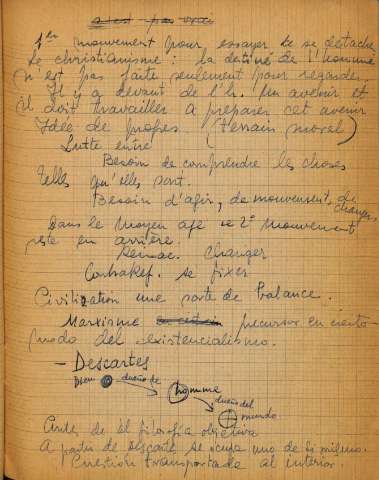 c'est pas vrai
1er mouvement pour essayer de se detacher
de christianisme : la destiné de l'homme
n'est pas faite seulement pour regarder.
Il y a devant de l'h. un avenir et
il doit travailler a preparer cet avenir
Idée de progres. (Terrain moral)
Lutte entre
Besoin de comprendre les choses
telles qu'elles sont.
Besoin d'agir, de mouvement, de changer,
Dans le moyen age ce 2e mouvement
reste en arrière.
Renac. changer
ContraRef. se fixer
Civilization une sorte de balance.
Marxisme precursor en cierto
modo del existencialismo.
- Descartes
Dieu dueño de homme
dueño del
mundo.
Antes de el filosofia objetiva
A partir de Descarte se ocupa uno de si mismo.
Cuestion transportada al interior.